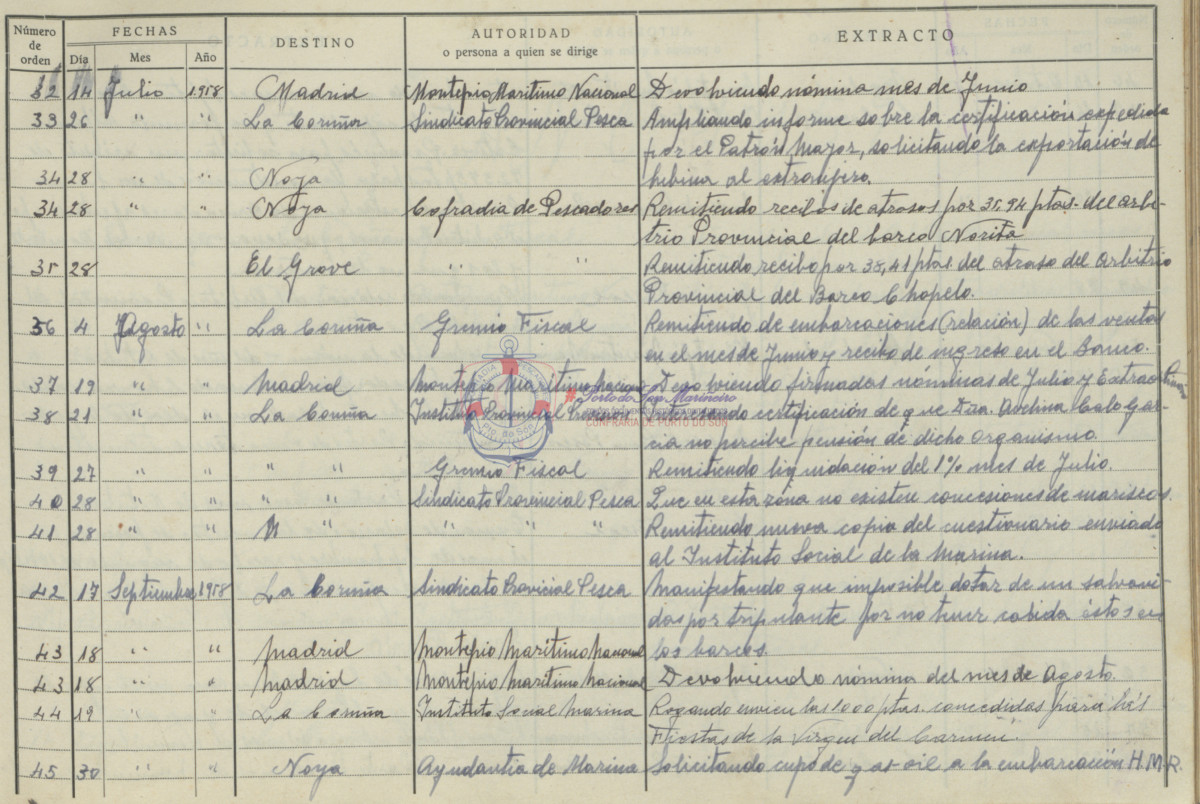 Número de orden FECHAS DESTINO AUTORIDAD EXTRACTO
Día Mes Año o persona a quien se dirige
32 14 Julio 1958 Madrid Montepio Maritimo Nacional Devolviendo nómina mes de Junio
33 26 " " La Coruña Sindicato Provincial Pesca Ampliando informe sobre la certificación expedida
por el Patrón Mayor, solicitando la exportación de
34 28 " " Noya hibina al estranjero.
34 28 " " Noya Cofradia de Pescadores Remitiendo recibos de atrasos por 35,94 ptas. del arbi-
trio Provincial del barco Norita
35 28 El Grove " " Remitiendo recibo por 35,41 ptas del atraso del arbitrio
Provincial del Barco Chopelo.
36 4 Agosto " La Coruña Gremio Fiscal Remitiendo de embarcaciones (relación) de las ventas
en el mes de Junio y recibo de ingreso en el Banco.
37 19 " " Madrid Montepio Maritimo Nacional Devolviendo firmadas nóminas de Julio y Extraor
38 21 " " La Coruña Instituto Provincial Prevision Interesando certificación de que Dña. Avelina Calo Gar-
cia no percibe pensión de dicho organismo.
39 27 " " " " Gremio Fiscal Remitiendo liquidación del 1% mes de Julio.
40 28 " " " " Sindicato Provincial Pesca Que en esta zona no existen concesiones de mariscos.
41 28 " " " " " " " Remitiendo nueva copia del cuestionario enviado
al Instituto Social de la Marina.
42 17 Septiembre 1958 La Coruña Sindicato Provicial Pesca Manifestando que imposible dotar de un salvavi-
das por tripulante por no tener cabida éstos en
43 18 " " Madrid Montepio Maritimo Nacional los barcos.
43 18 " " Madrid Montepio Maritimo Nacional Devolviendo nómina del mes de Agosto.
44 19 " " La Coruña Instituto Social Marina Rogando envien las 1.000 ptas. concedidas para las
Fiestas de la Virgen del Carmen.
45 30 " " Noya Ayudantia de Marina Solicitando cupo de gas-oil a la embarcación H.M.R.
Pto. do Son
CONFRARÍA DE PORTO DO SON